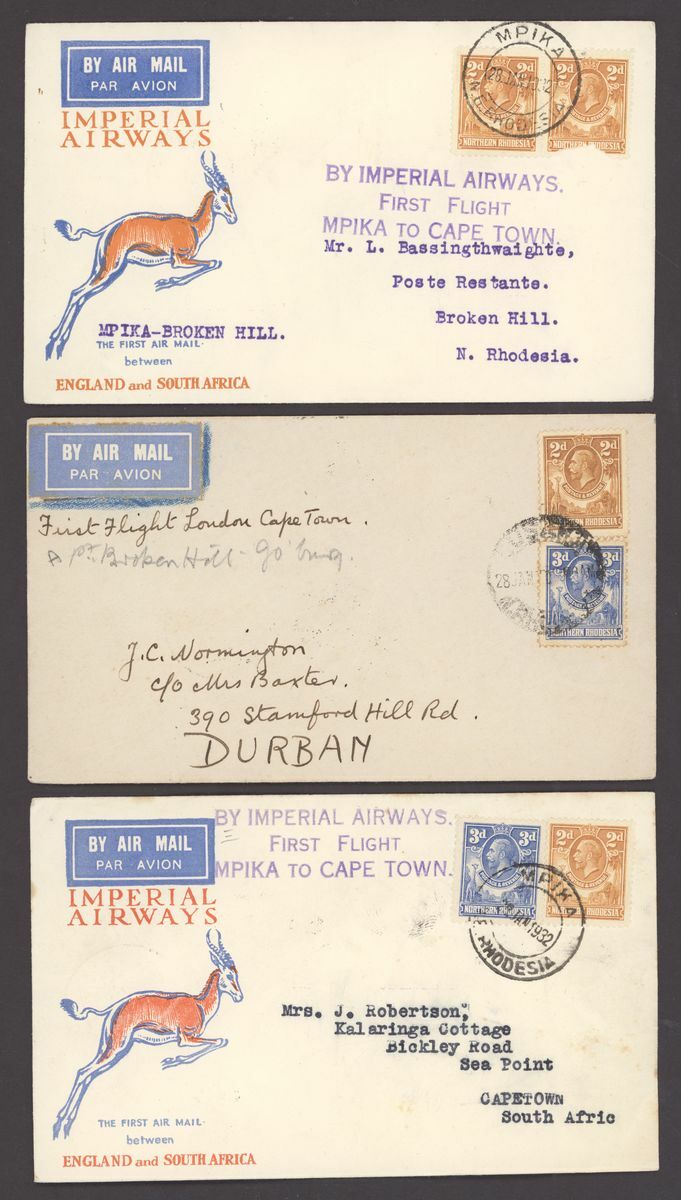 BY AIR MAIL
PAR AVION
IMPERIAL
AIRWAYS
2d 2d
NORTHERN RHODESIA
POSTAGE & REVENUE
NORTHERN RHODESIA
MPIKA
28 JAN 1932
N. RHODESIA
BY IMPERIAL AIRWAYS.
FIRST FLIGHT
MPIKA TO CAPE TOWN.
Mr. L. Bassingthwaighte,
Poste Restante.
Broken Hill.
N. Rhodesia.
MPIKA-BROKEN HILL.
THE FIRST AIR MAIL
between
ENGLAND and SOUTH AFRICA
BY AIR MAIL
PAR AVION
2d 2d
POSTAGE & REVENUE
NORTHERN RHODESIA
3d 3d
NORTHERN RHODESIA
28 JAN
First Flight London Cape Town.
Broken Hill - Jo'burg.
J.C. Normington
c/o Mrs Baxter.
390 Stamford Hill Rd.
DURBAN
BY AIR MAIL
PAR AVION
IMPERIAL
AIRWAYS
BY IMPERIAL AIRWAYS.
FIRST FLIGHT
MPIKA TO CAPE TOWN.
3d 3d
POSTAGE & REVENUE
NORTHERN RHODESIA
2d 2d
NORTHERN RHODESIA
MPIKA
JAN 1932
RHODESIA
Mrs. J. Robertson,
Kalaringa Cottage
Bickley Road
Sea Point
CAPETOWN
South Afric
THE FIRST AIR MAIL
between
ENGLAND and SOUTH AFRICA